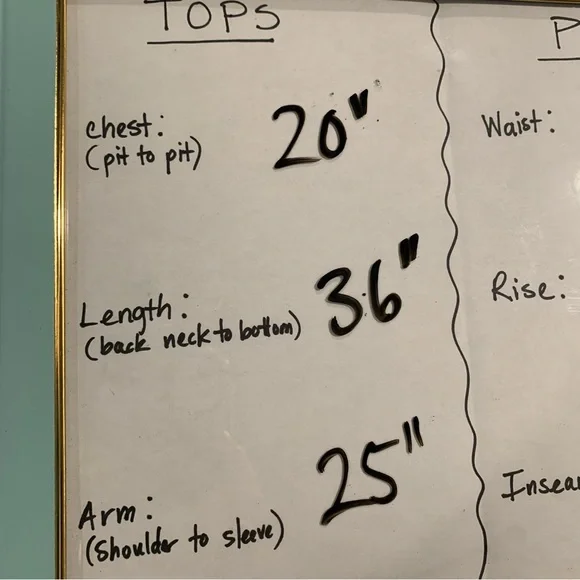 TOPS
chest: 20"
(pit to pit)
Length: 36"
(back neck to bottom)
Arm: 25"
(shoulder to sleeve)
P
Waist:
Rise:
Insea